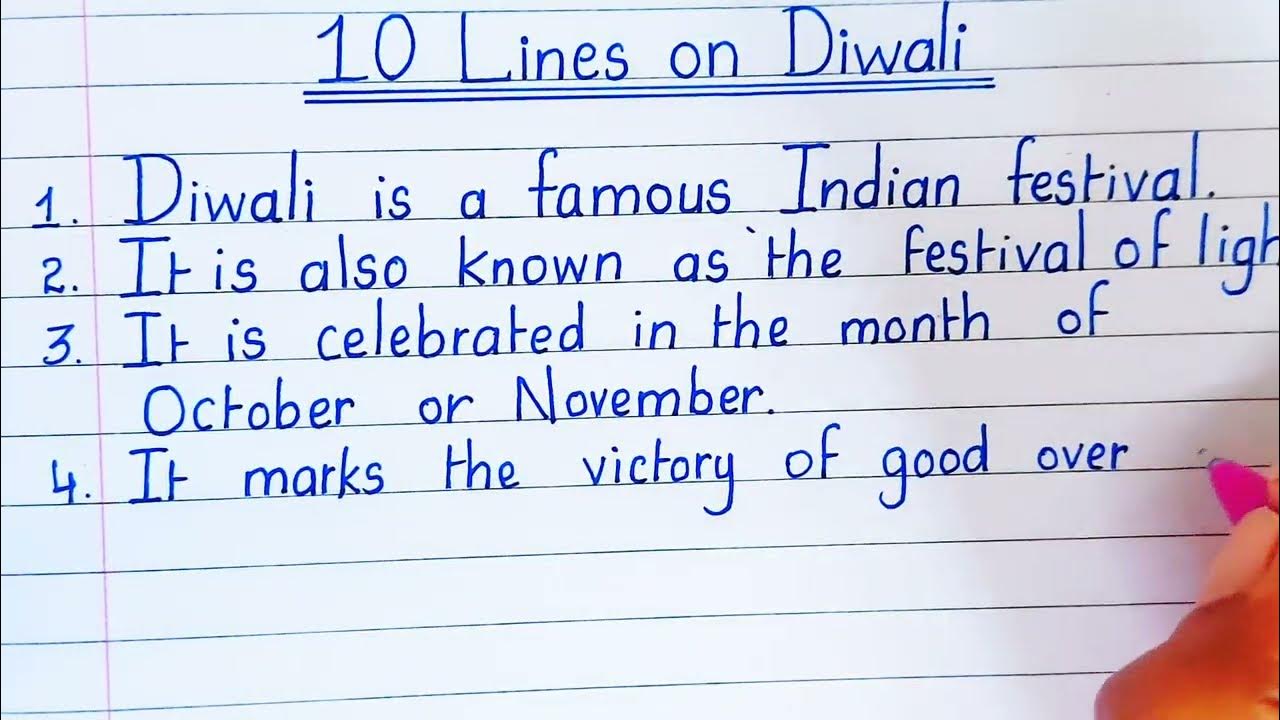 10 Lines on Diwali
1. Diwali is a famous Indian festival.
2. It is also known as the festival of ligh
3. It is celebrated in the month of
October or November.
4. It marks the victory of good over